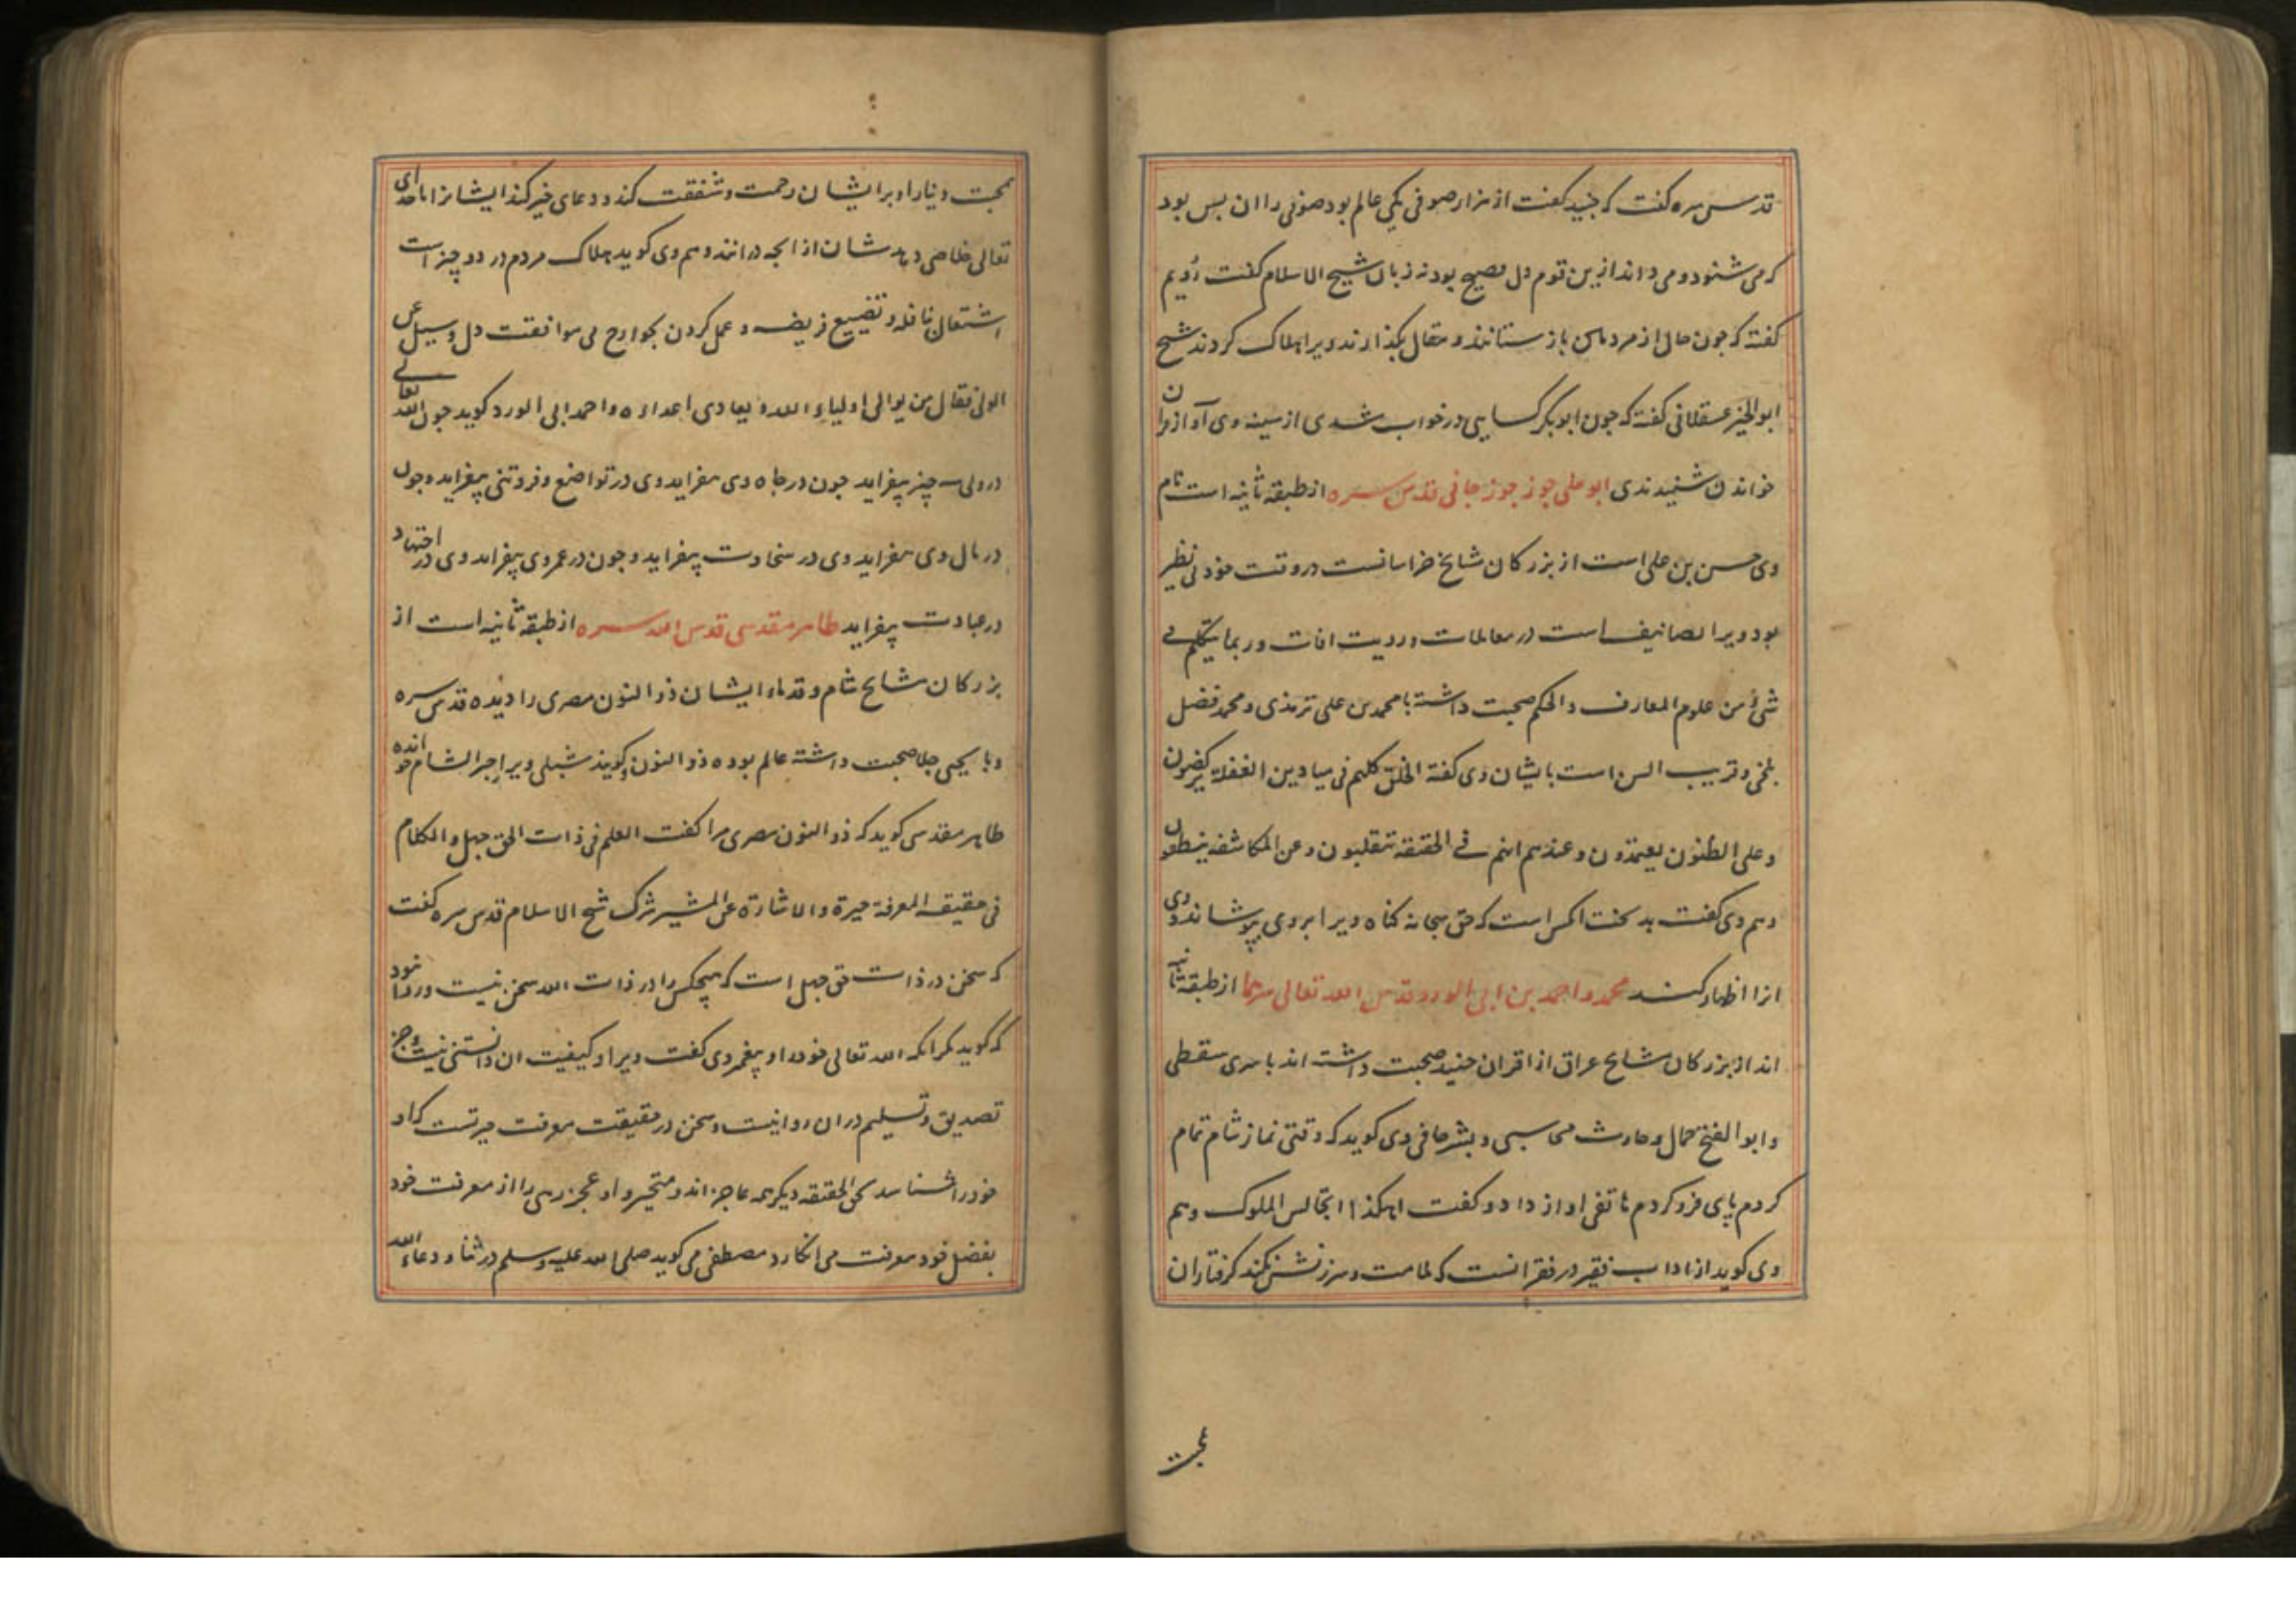 قدس سره گفت که جنید گفت از هزار صوفی یکی عالم بود صوفی را ان بس بود
که می شنود و می داند ازین قوم دل فصیح بود نه زبان شیخ الاسلام گفت رُویم
گفته که چون حال از مرد باز ستانند و مقال بگذارند ویرا هلاک کردند شیخ
ابوالخیر عسقلانی گفته که چون ابوبکر کسایی در خواب شدی از سینه وی آواز قران
خواندن شنیدندی ابو علی جوزجانی قدس سره از طبقه ثانیه است نام
وی حسن بن علی است از بزرکان مشایخ خراسانست در وقت خود بی نظیر
بود ویرا تصانیف است در معاملات و رویت افات و ربما یتکلم فی
شیٔ من علوم المعارف والحکم صحبت داشته با محمد بن علی ترمذی و محمد فضل
بلخی و قریب السن است بایشان وی گفته الخلق کلهم فی میادین الغفلة یرکضون
و علی الظنون یعتمدون و عندهم انهم فی الحقیقه یتقلبون و عن المکاشفه ینطقون
و هم وی گفت بدبخت انکس است که حق سبحانه کناه ویرا بروی بپوشاند و وی
انرا اظهار کند محمد و احمد بن ابی الورد قدس الله تعالی سرهما از طبقه ثانیه
اند از بزرکان مشایخ عراق از اقران جنید صحبت داشته اند با سری سقطی
و ابو الفتح حمال و حارث محاسبی و بشر حافی وی گوید که وقتی نماز شام تمام
کردم پای فرو کردم هاتفی اواز داد و گفت اهکذا تجالس الملوک و هم
وی کوید از اداب فقیر در فقر انست که ملامت و سرزنش نکند گرفتاران
بمحبت
بمحبت دنیا را و بر ایشان رحمت و شفقت کند و دعای خیر کند ایشانرا تا خدای
تعالی خلاصی دهد شان از انچه در انند و هم وی کوید هلاک مردم در دو چیز است
اشتغال بنافله و تضییع فریضه و عمل کردن بجوارح بی موافقت دل و سیل عن
الولی فقال من یوالی اولیاء الله و یعادی اعداءه و احمد ابی الورد کوید چون الله تعالی
در ولی سه چیز بیفزاید چون در جاه وی بیفزاید وی در تواضع و فروتنی بیفزاید و چون
در مال وی بیفزاید وی در سخاوت بیفزاید و چون در عمر وی بیفزاید وی در اجتهاد
در عبادت بیفزاید طاهر مقدسی قدس الله سره از طبقه ثانیه است از
بزرکان مشایخ شام و قدماء ایشان ذوالنون مصری را دیده قدس سره
و با یحیی جلا صحبت داشته عالم بوده ذوالنون و کویند شبلی ویرا حبر الشام خوانده
طاهر مقدسی کوید که ذوالنون مصری مرا گفت العلم فی ذات الحق جهل و الکلام
فی حقیقه المعرفة حیرة و الاشارة عن المشیر شرک شیخ الاسلام قدس سره گفت
که سخن در ذات حق جهل است که هیچکس را در ذات الله سخن نیست و روا نبود
که کوید مکر انکه الله تعالی خود را و پیغمبر وی گفت ویرا و کیفیت ان دانستنی نیست و جز
تصدیق و تسلیم در ان روا نیست و سخن در حقیقت معرفت حیرتست که او
خود را شناسد بحق الحقیقه دیگر همه عاجز اند و متحیر و او عجز رهی را از معرفت خود
بفضل خود معرفت می انگارد مصطفی می کوید صلی الله علیه وسلم در ثناء و دعاء الله